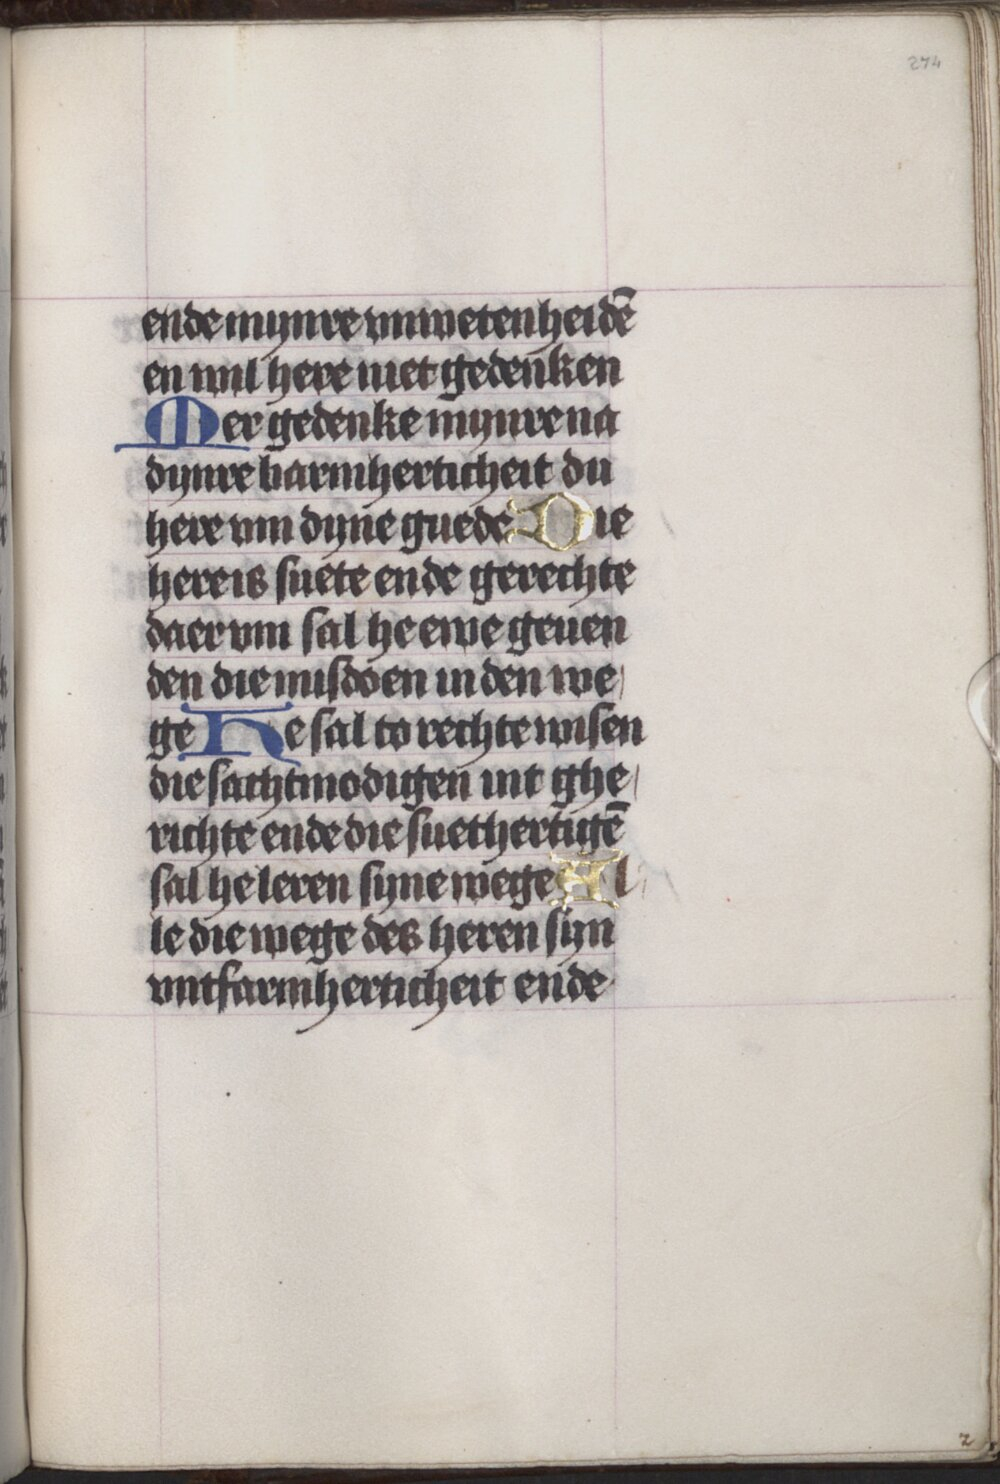 274
ende mynre vnwetenheidē
en wil here niet gedenken
Mer gedenke mynre na
dynre barmherticheit du
here vm dyne guede Die
here is suete ende gerechte
daer vm sal he ewe geuen
den die misdoen in den we/
ge He sal to rechte wisen
die sachtmodigen int ghe/
richte ende die suethertigē
sal he leren syne wege Al/
le die wege des heren syn
vntfarmherticheit ende
2